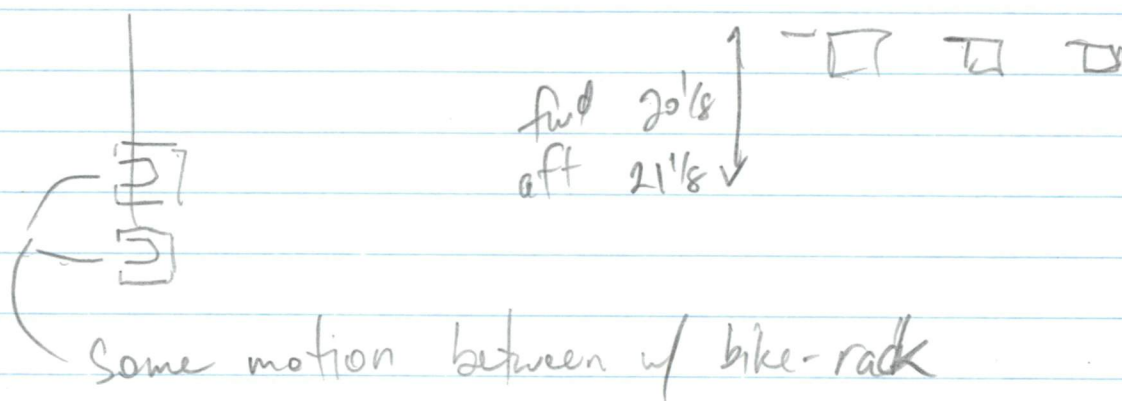 fwd 20 1/8
aft 21 1/8
Some motion between w/ bike-rack